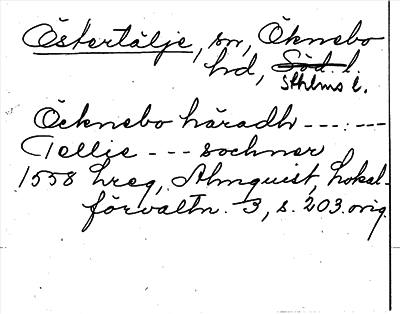 Östertälje, sn, Öknebo
hd, Söd. l.
Sthlms l.
Öcknebo häradh ---:---
Tellie --- sochner
1558 hreg, Almquist, Lokal-
förvaltn. 3, s. 203. orig.